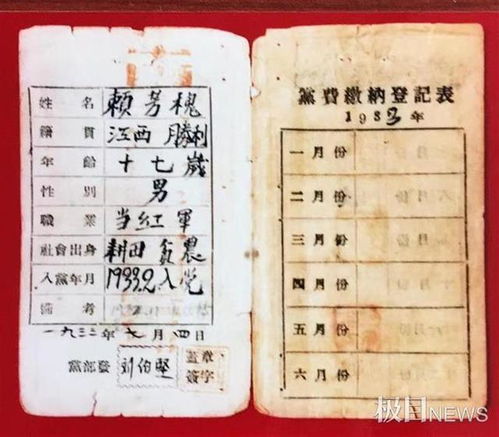 姓名 賴芳槐
籍貫 江西勝利
年齡 十七歲
性別 男
職業 当紅軍
社會出身 耕田 貧農
入黨年月 1933.2入党
備考
一九三三年 月四日
黨部發 刘伯堅 蓋章簽字
黨費繳納登記表
1933年
一月份
二月份
三月份
四月份
五月份
六月份
极目NEWS